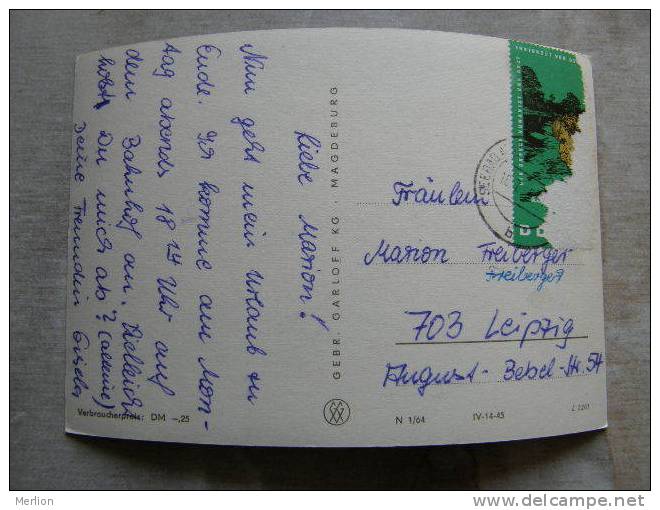 Liebe Marion!
Nun geht mein Urlaub zu
Ende. Ich komme am Mon-
tag abends 18 14 Uhr auf
dem Bahnhof an. Vielleich
holst Du mich ab? (alleine)
Deine Freundin Gisela
GEBR. GARLOFF KG · MAGDEBURG
Fräulein
Marion Freiberger
Freiberger
703 Leipzig
August-Bebel-Str. 54
Verbraucherpreis: DM -,25
N 1/64
IV-14-45
Merlion
http://www.delcampe.net